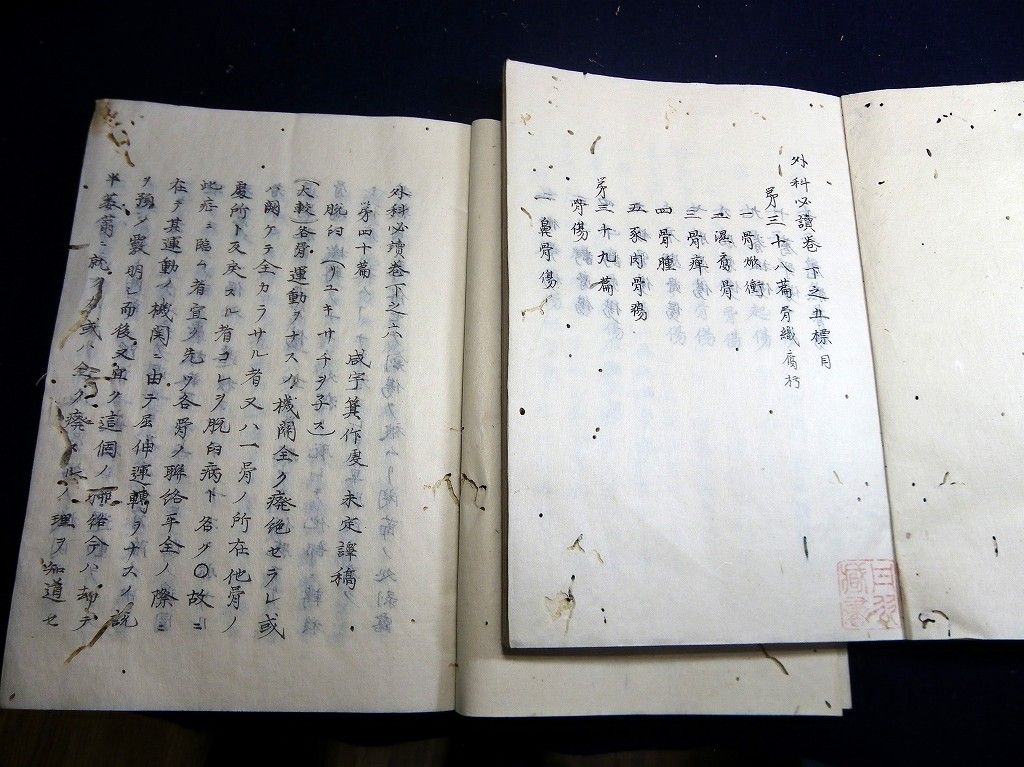 外科必讀巻下之五標目
第三十八篇骨纖腐朽
一骨焮衝
二濕腐骨
三骨痺
四骨腫
五豕肉骨瘍
第三十九篇
骨傷
一鼻骨傷
外科必讀巻下之六
第四十篇 咸宇箕作虔 未定譯稿
脱臼
(大較)各骨運動ヲナスハ機關全ク廢絶セラレ或
ハ闕ケテ全カラサル者又ハ一骨ノ所在他骨ノ
處所ト及戻スル者コレヲ脱臼病ト名ク〇故ニ
此症ニ臨ム者宜ク先ツ各骨ノ聯絡平全ノ際ニ
在テ其運動ノ機関ニ由テ屈伸運轉ヲナスノ説
ヲ預シメ發明シ而後又宜ク這個ノ聯絡今ハ却テ
半 就 或ハ全ク廢 ノ理ヲ知道セ